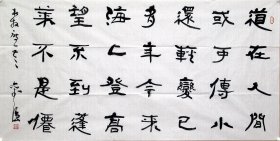 道在人間
或可傳小
還輕變已
多年今来
海上登高
望不到蓬
萊不是僊